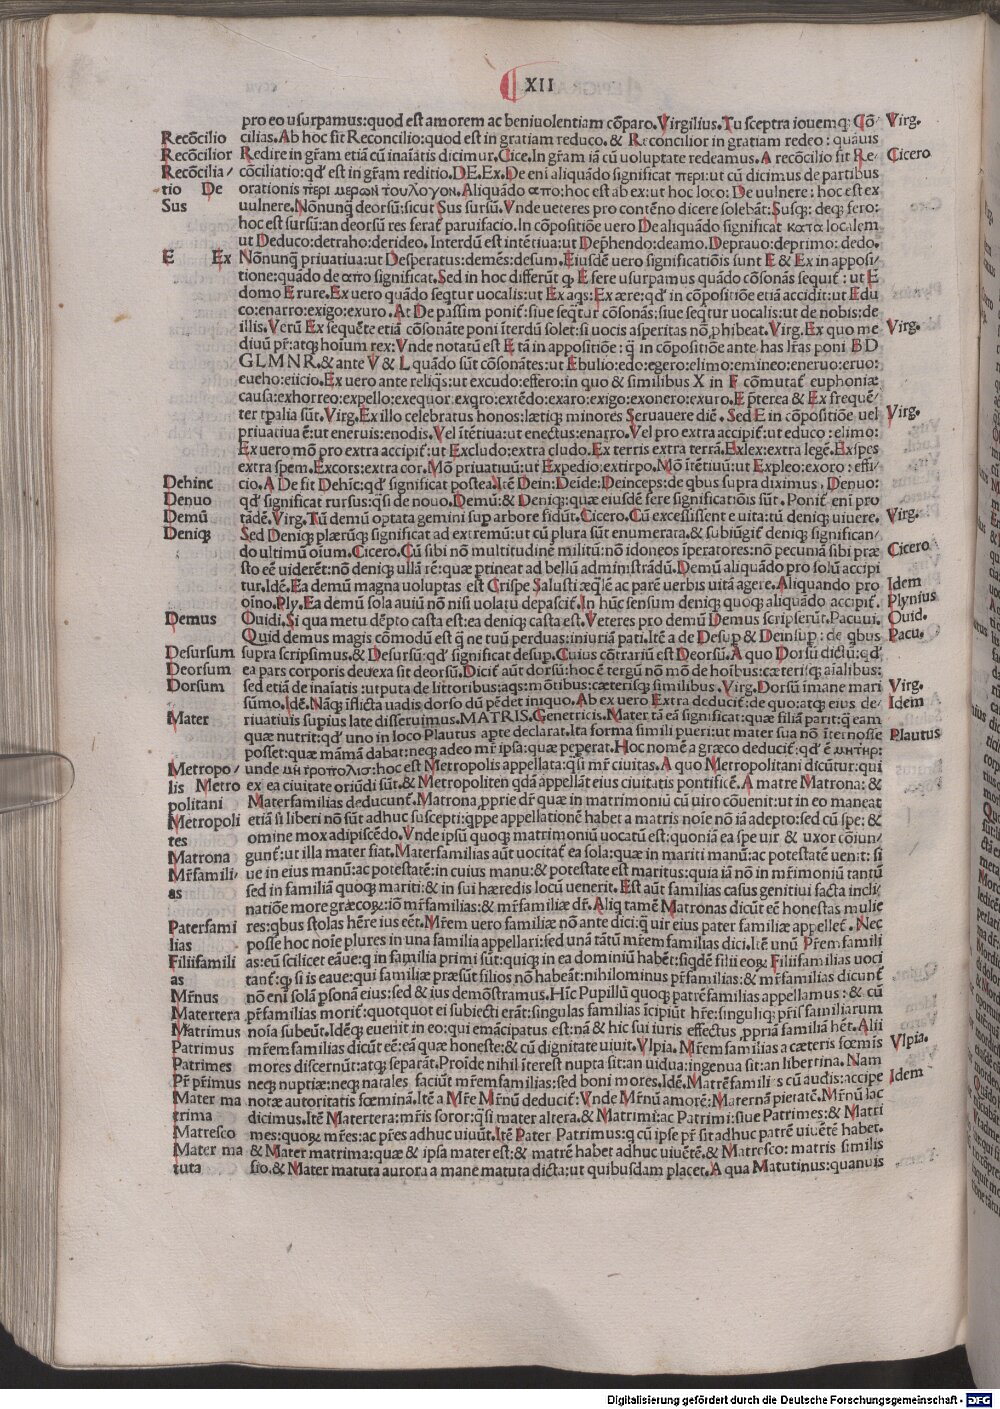 XII
pro eo usurpamus:quod est amorem ac beniuolentiam cõparo.Virgilius.Tu sceptra iouemq; Cõ Virg.
Recõcilio cilias.Ab hoc fit Reconcilio:quod est in gratiam reduco.& Reconcilior in gratiam redeo: quãuis
Recõcilior Redire in gr̃am etiã cũ inaĩatis dicimur.Cice.In gr̃am iã cũ uoluptate redeamus.A recõcilio fit Re/ Cicero
Recõcilia/ cõciliatio:qd' est in gr̃am reditio.DE.Ex.De eni aliquãdo significat περι:ut cũ dicimus de partibus
tio De orationis περι μερων του λογον.Aliquãdo απο:hoc est ab ex:ut hoc loco: De uulnere: hoc est ex
Sus uulnere.Nõnunq̃ deorsũ:sicut Sus sursũ.Vnde ueteres pro contẽno dicere solebãt:Susq; deq; fero:
hoc est sursũ:an deorsũ res serat̃ paruifacio.In cõpositiõe uero De aliquãdo significat κατα localem
ut Deduco:detraho:derideo. Interdũ est intẽtiua:ut Dep̃hendo:deamo.Deprauo:deprimo: dedo.
E Ex Nõnunq̃ priuatiua:ut Desperatus:demẽs:desum.Eiusdẽ uero significatiõis sunt E & Ex in apposi/
tione:quãdo de απο significat.Sed in hoc differũt q; E fere usurpamus quãdo cõsonãs sequit̃: ut E
domo E rure.Ex uero quãdo seq̃tur uocalis:ut Ex aq̃s:Ex ære:qd' in cõpositiõe etiã accidit:ut Edu
co:enarro:exigo:exuro.At De passim ponit̃:siue seq̃tur cõsonãs:siue seq̃tur uocalis:ut de nobis:de
illis.Verũ Ex sequẽte etiã cõsonãte poni ĩterdũ solet:si uocis asperitas nõ p̃hibeat.Virg.Ex quo me Virg.
diuũ pr̃:atq; hoĩum rex:Vnde notatũ est E tã in appositiõe: q̃ in cõpositiõe ante has lr̃as poni B D
G L M N R.& ante V & L quãdo sũt cõsonãtes:ut Ebulio:edo:egero:elimo:emineo:eneruo:eruo:
eueho:eiicio.Ex uero ante reliq̃s:ut excudo:effero:in quo & similibus X in F cõmutat̃ euphoniæ
causa:exhorreo:expello:exequor.exq̃ro:extẽdo:exaro.exigo:exonero:exuro.E p̃terea & Ex frequẽ/
ter tp̃alia sũt.Virg.Ex illo celebratus honos:lætiq; minores Seruauere diẽ. Sed E in cõpositiõe uel Virg.
priuatiua ẽ:ut eneruis:enodis.Vel ĩtẽtiua:ut enectus:enarro.Vel pro extra accipit̃:ut educo: elimo:
Ex uero mõ pro extra accipit̃:ut Excludo:extra cludo.Ex terris extra terrã.Exlex:extra legẽ.Exspes
extra spem.Excors:extra cor.Mõ priuatiuũ:ut Expedio:extirpo.Mõ ĩtẽtiuũ:ut Expleo:exoro: effi/
Dehinc cio.A De fit Dehĩc:qd' significat postea.Itẽ Dein:Deide:Deinceps:de q̃bus supra diximus. Denuo:
Denuo qd' significat rursus:q̃si de nouo.Demũ:& Deniq;:quæ eiusdẽ fere significatiõis sũt. Ponit̃ eni pro
Demũ tãdẽ.Virg.Tũ demũ optata gemini sup̃ arbore sidũt.Cicero.Cũ excessissent e uita:tũ deniq; uiuere. Virg.
Deniq; Sed Deniq; plærũq; significat ad extremũ:ut cũ plura sũt enumerata.& subiũgit̃ deniq; significan/
do ultimũ oĩum.Cicero.Cũ sibi nõ multitudinẽ militũ:nõ idoneos ĩperatores:nõ pecuniã sibi præ Cicero
sto eẽ uiderẽt:nõ deniq; ullã rẽ:quæ p̃tineat ad bellũ administrãdũ.Demũ aliquãdo pro solũ accipi
tur.Idẽ.Ea demũ magna uoluptas est Crispe Salusti æq̃lẽ ac parẽ uerbis uitã agere.Aliquando pro Idem
oĩno.Ply.Ea demũ sola auiũ nõ nisi uolatu depascit̃.In hũc sensum deniq; quoq; aliquãdo accipit̃. Plynius
Demus Ouidi.Si qua metu dẽpto casta est:ea deniq; casta est.Veteres pro demũ Demus scripserũt.Pacuui. Ouid.
Quid demus magis cõmodũ est q̃ ne tuũ perduas:iniuriã pati.Itẽ a de Desup̃ & Deinsup̃: de q̃bus Pacu.
Desursum supra scripsimus.& Desursũ:qd' significat desup̃.Cuius cõtrariũ est Deorsũ.A quo Dorsũ dictũ:qd'
Deorsum ea pars corporis deuexa sit deorsũ.Dicit̃ aũt dorsũ:hoc ẽ tergũ nõ mõ de hoĩbus:cæterisq; aĩalibus:
Dorsum sed etiã de inaĩatis:utputa de littoribus:aq̃s:mõtibus:cæterisq; similibus. Virg.Dorsũ ĩmane mari Virg.
sũmo.Idẽ.Nãq; ĩflicta uadis dorso dũ pẽdet iniquo.Ab ex uero Extra deducit̃:de quo:atq; eius de/ Idem
Mater riuatiuis supius late disseruimus.MATRIS.Genetricis.Mater tã eã significat:quæ filiã parit:q̃ eam
quæ nutrit:qd' uno in loco Plautus apte declarat.Ita forma simili pueri:ut mater sua nõ ĩternosse Plautus
posset:quæ mãmã dabat:neq; adeo mr̃ ipsa:quæ pepe̾rat.Hoc nomẽ a græco deducit̃:qd' ẽ μητηρ:
Metropo/ unde μητροπολισ:hoc est Metropolis appellata:q̃si mr̃ ciuitas.A quo Metropolitani dicũtur:qui
lis Metro ex ea ciuitate oriũdi sũt.& Metropoliten qdã appellãt eius ciuitatis pontificẽ.A matre Matrona: &
politani Materfamilias deducunt̃.Matrona p̃prie dr̃ quæ in matrimoniũ cũ uiro cõuenit:ut in eo maneat
Metropoli etiã si liberi nõ sũt adhuc suscepti:q̃ppe appellationẽ habet a matris noĩe nõ iã adepto:sed cũ spe: &
tes omine mox adipiscẽdo.Vnde ipsũ quoq; matrimoniũ uocatũ est:quoniã ea spe uir & uxor cõiun/
Matrona gunt̃:ut illa mater fiat.Materfamilias aũt uocitat̃ ea sola:quæ in mariti manũ:ac potestatẽ uenit: si
Mr̃famili/ ue in eius manũ:ac potestatẽ:in cuius manu:& potestate est maritus:quia iã nõ in mr̃imoniũ tantũ
as sed in familiã quoq; mariti:& in sui hæredis locũ uenerit.Est aũt familias casus genitiui facta incli/
natiõe more græcoꝝ:iõ mr̃familias:& mr̃familiæ dr̃.Aliq̃ tamẽ Matronas dicũt eẽ honestas mulie
Paterfami res:q̃bus stolas hẽre ius eẽt.Mr̃em uero familiæ nõ ante dici:q̃ uir eius pater familiæ appellet̃. Nec
lias posse hoc noĩe plures in una familia appellari:sed unã tãtũ mr̃em familias dici.Itẽ unũ Pr̃em famili
Filiifamili as:eũ scilicet eãue:q̃ in familia primi sũt:quiq; in ea dominiũ habẽt:siq̃dẽ filii eoꝝ Filiifamilias uoci
as tant̃:q; si is eaue:qui familiæ præsũt filios nõ habeãt:nihilominus pr̃familias:& mr̃familias dicunt̃
Mr̃nus nõ eni solã p̃sonã eius:sed & ius demõstramus.Hĩc Pupillũ quoq; patrẽfamilias appellamus: & cũ
Matertera pr̃familias morit̃:quotquot ei subiecti erãt:singulas familias ĩcipiũt hr̃e:singuliq; pr̃is familiarum
Matrimus noĩa subeũt.Idẽq; euenit in eo:qui emãcipatus est:nã & hic sui iuris effectus p̃priã familiã hẽt. Alii
Patrimus mr̃em familias dicũt eẽ:eã quæ honeste:& cũ dignitate uiuit.Vlpia.Mr̃em familias a cæteris fœmis Vlpia.
Patrimes mores discernũt:atq; separãt.Proĩde nihil ĩterest nupta sit:an uidua:ingenua sit:an libertina. Nam
Pr̃ pr̃imus neq; nuptiæ:neq; natales faciũt mr̃emfamilias:sed boni mores.Idẽ.Matrẽfamilias cũ audis:accipe Idem
Mater ma notæ autoritatis fœminã.Itẽ a Mr̃e Mr̃nũ deducit̃: Vnde Mr̃nũ amorẽ:Maternã pietatẽ.Mr̃nũ lac
trima dicimus.Itẽ Matertera:mr̃is soror:q̃si mater altera.& Matrimi:ac Patrimi:siue Patrimes:& Matri
Matresco mes:quoꝝ mr̃es:ac pr̃es adhuc uiuũt.Itẽ Pater Patrimus:q cũ ipse pr̃ sit adhuc patrẽ uiuẽtẽ habet.
Mater ma & Mater matrima:quæ & ipsa mater est:& matrẽ habet adhuc uiuẽtẽ.& Matresco: matris similis
tuta fio.& Mater matuta aurora a mane matuta dicta:ut quibusdam placet.A qua Matutinus:quanuis
Digitalisierung gefördert durch die Deutsche Forschungsgemeinschaft - DFG